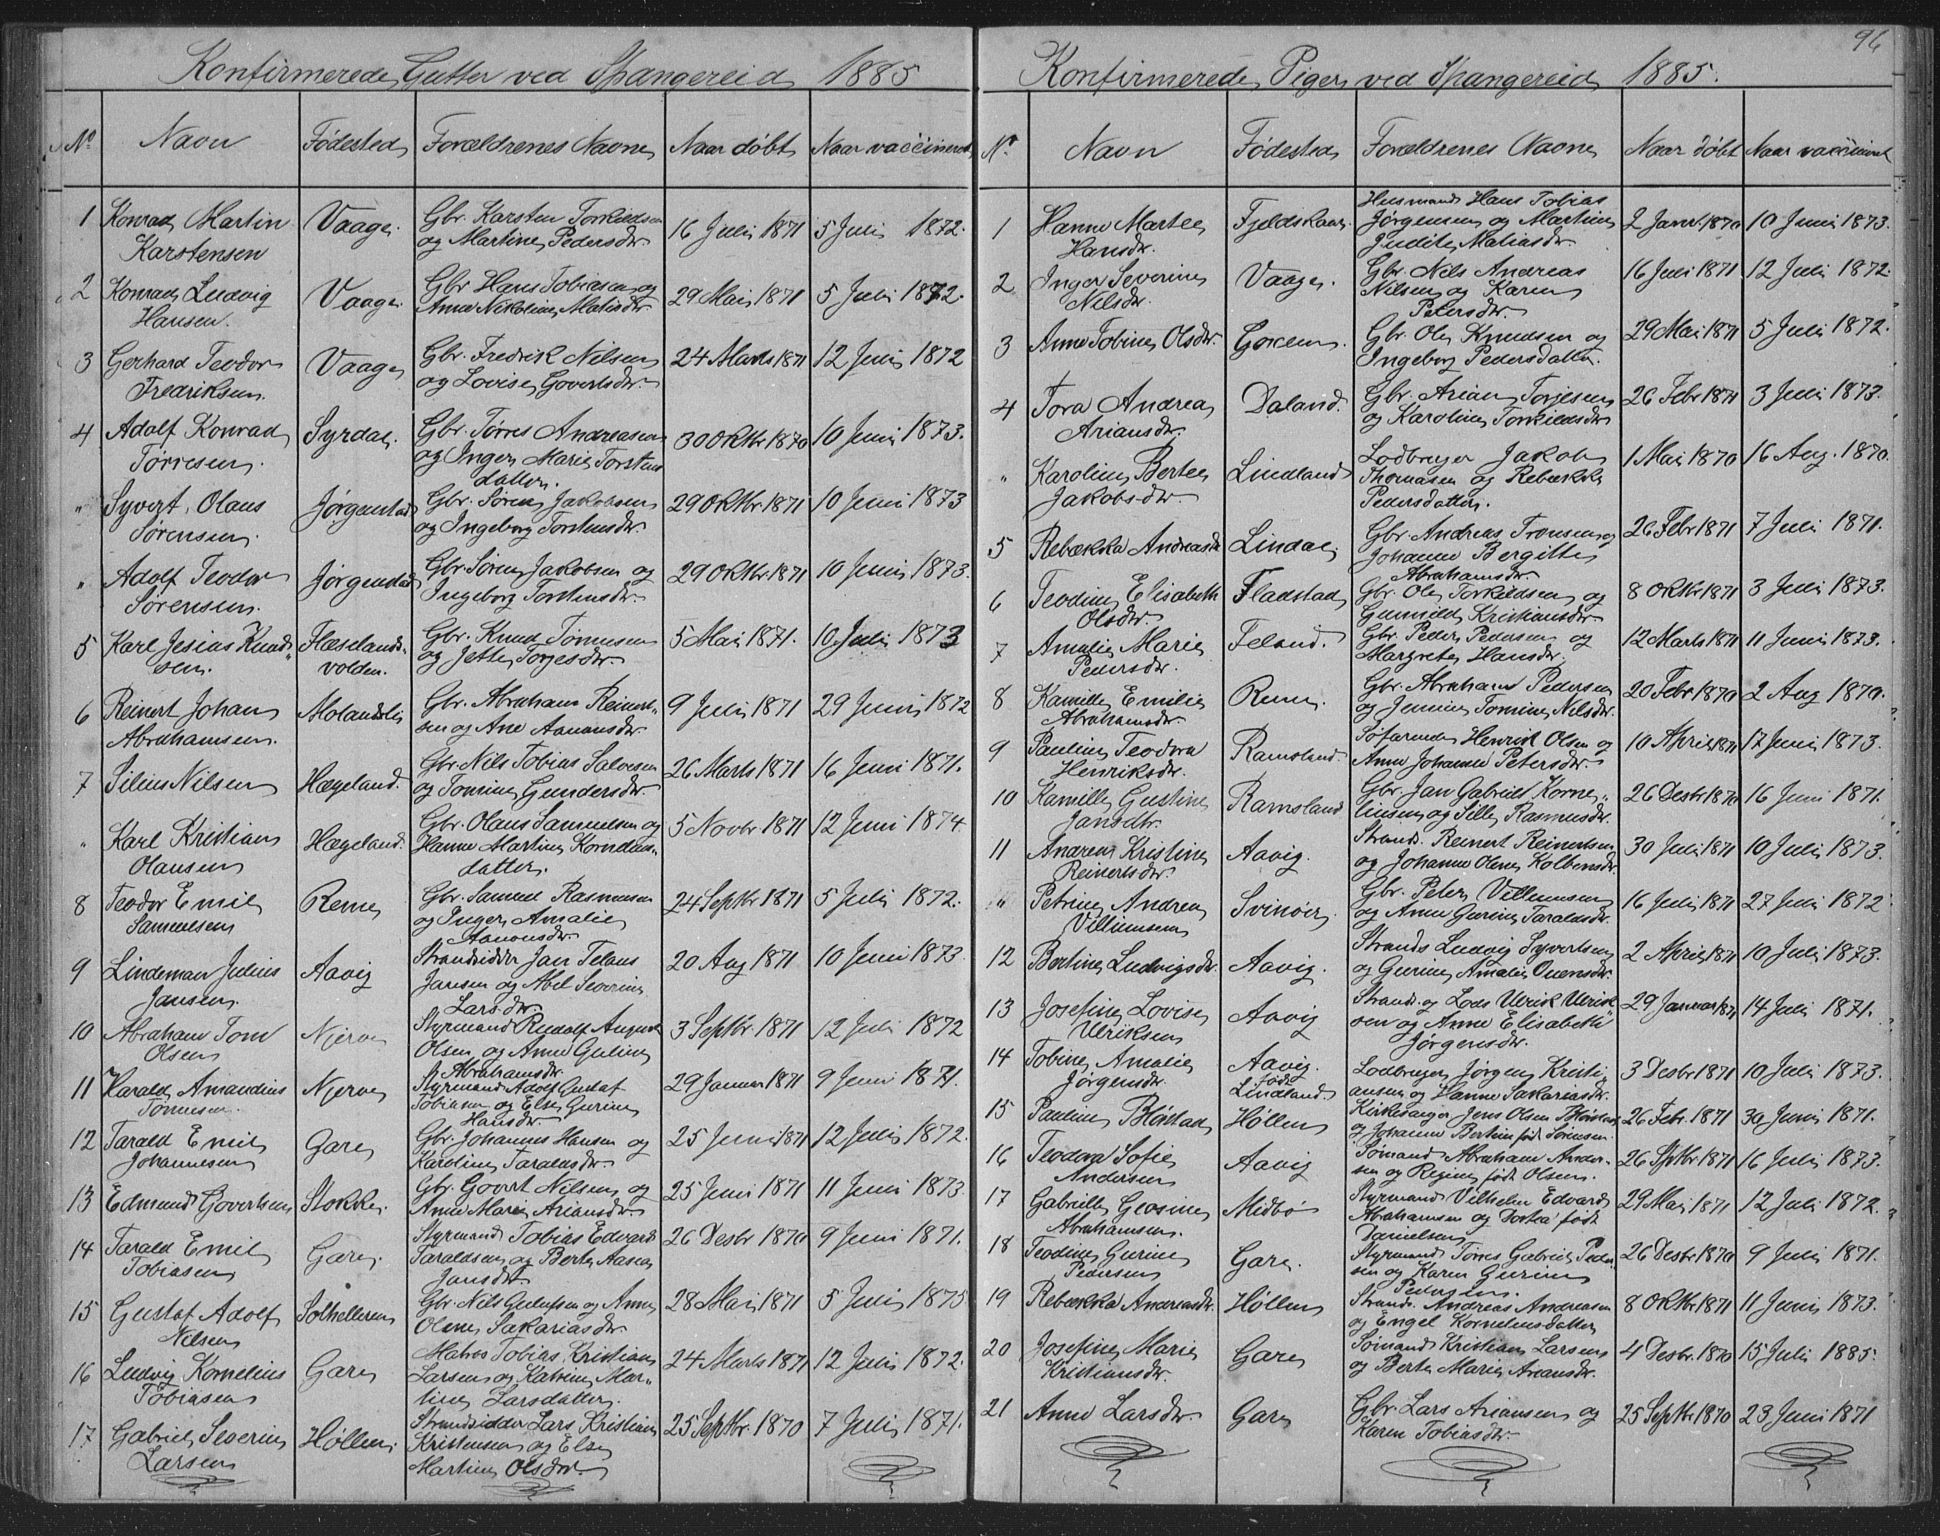 96
Konfirmerede Gutter ved Spangereid 1885
No Navn Fødested Forældrenes Navne Naar døbt Naar vaccineret
1 Konrad Martin Karstensen Vaage. Gbr. Karsten Torkildsen og Martine Pedersdr. 16 Juli 1871 5 Juli 1872.
2 Konrad Ludvig Hansen. Vaage. Gbr. Hans Tobiasen og Anne Nikoline Matisdr. 29 Mai 1871 5 Juli 1872.
3 Gerhard Teodor Fredriksen. Vaage Gbr. Fredrik Nilsen og Lovise Govertsdr. 24 Marts 1871 12 Juli 1872
4 Adolf Konrad Tørresen. Syrdal. Gbr. Tørres Andreasen og Inger Marie Torstens datter. 30 Oktbr 1870 10 Juni 1873.
" Syvert Olaus Sørensen. Jørgenstad Gbr. Søren Jakobsen og Ingeborg Torstensdr. 29 Oktbr 1871 10 Juni 1873
" Adolf Teodor Sørensen. Jørgenstad Gbr. Søren Jakobsen og Ingeborg Torstensdr. 29 Oktbr 1871 10 Juni 1873.
5 Karl Jesias Knud- sen. Flæselands- volden. Gbr. Knud Tønnesen og Jette Torjesdr. 5 Mai 1871. 10 Juli 1873
6 Reinert Johan Abrahamsen. Molandslie Gbr. Abraham Reinert- sen og Ane Aanonsdr. 9 Juli 1871 29 Juni 1872
7 Silius Nilsen Hægeland. Gbr Nils Tobias Salvesen og Tomine Gundersdr. 26 Marts 1871 16 Juni 1871.
" Karl Kristian Olausen Hægeland. Gbr. Olaus Samuelsen og Hanne Martine Kornelius- datter. 5 Novbr 1871 12 Juni 1874
8 Teodor Emil Samuelsen Reme Gbr. Samuel Rasmussen og Inger Amalie Aanonsdr. 24 Septbr 1871 5 Juli 1872.
9 Lindeman Julius Jansen. Aavig Strandsidder Jan Telaus Jansen og Abel Severine Larsdr. 20 Aug 1871 10 Juni 1873.
10 Abraham Tom Olsen Njerve Styrmand Rudolf August Olsen og Anne Guline Abrahamsdr. 3 Septbr 1871 12 Juli 1872
11 Harald Amandius Tønnesen. Njerve Styrmand Adolf Gustaf Tobiasen og Else Gurine Hansdr. 29 Januar 1871 9 Juni 1871.
12 Tarald Emil Johannesen Gare Gbr. Johannes Hansen og Karoline Taraldsdr. 25 Juni 1871 12 Juli 1872.
13 Edmund Govertsen Stokke. Gbr. Govert Nilsen og Anne Marie Ariansdr. 25 Juni 1871 11 Juni 1873.
14 Tarald Emil Tobiasen Gare. Styrmand Tobias Edvard Taraldsen og Berte Aasea Jansdtr. 26 Desbr 1870 9 Juni 1871.
15 Gustaf Adolf Nilsen Solhelleren Gbr. Nils Gulufsen og Anne Olene Sakariasdr. 28 Mai 1871 5 Juli 1875
16 Ludvig Kornelius Tobiasen Gare Matros Tobias Kristian Larsen og Katrine Mar- tine Larsdatter. 24 Marts 1871 12 Juli 1872.
17 Gabriel Severin Larsen Høllen. Strandsidder Lars Kristian Kristensen og Else Martine Olsdr. 25 Septbr. 1870 7 Juli 1871.
Konfirmerede Piger ved Spangereid 1885.
No. Navn Fødested Forældrenes Navne Naar døbt Naar vaccineret
1 Hanne Martee Hansdr. Fjeldskaar. Husmand Hans Tobias Jørgensen og Martine Judite Matiasdr. 2 Janr. 1870 10 Juni 1873.
2 Inger Severine Nilsdr. Vaage. Gbr. Nils Andreas Nilsen og Karen Petersdr. 16 Juli 1871 12 Juli 1872.
3 Anne Tobine Olsdr. Goxem. Gbr. Ole Knudsen og Ingeborg Pedersdatter. 29 Mai 1871 5 Juli 1872.
4 Tora Andrea Ariansdr. Daland. Gbr. Arian Torjesen og Karoline Torkildsdr 26 Febr 1871 3 Juli 1873.
" Karoline Bertee Jakobsdr. Lindland Lodbruger Jakob Thomasen og Rebækka Pedersdatter. 1 Mai 1870 16 Aug. 1870.
5 Rebækka Andreasdr Lindal. Gbr. Andreas Tronsen og Johanne Bergitte Abrahamsdr. 26 Febr 1871 7 Juli 1871.
6 Teodine Elisabeth Olsdr. Fladstad Gbr. Ole Torkildsen og Gunnild Kristiansdr. 8 Oktbr 1871 3 Juli 1873.
7 Amalie Marie Pedersdr. Feland. Gbr. Peder Pedersen og Margrete Hansdr. 12 Marts 1871 11 Juni 1873.
8 Kamille Emilie Abrahamsdr. Reme. Gbr. Abraham Pedersen og Jennine Tomine Nilsdr. 20 Febr 1870 2 Aug 1870.
9 Pauline Teodora Henriksdr. Ramsland. Søfarende Henrik Olsen og Anne Johanne Petersdr. 10 April 1871 17 Juni 1873.
10 Kamille Gustine Jansdtr. Ramsland Gbr. Jan Gabriel Korne- liusen og Sille Rasmusdr. 26 Desbr 1870 16 Juni 1871.
11 Andrea Kristine Reinertsdr. Aavig. Strands. Reinert Reinertsen og Johanne Olene Kolbensdr. 30 Juli 1871 10 Juli 1873.
" Petrine Andrea Villumsen Svinøer. Gbr. Peter Villumsen og Anne Gurine Taraldsdr. 16 Juli 1871 27 Juli 1872
12 Bertine Ludvigsdr. Aavig. Strands Ludvig Syvertsen og Gurine Amalie Ouensdr. 2 April 1871 10 Juli 1873.
13 Josefine Lovise Ulriksen Aavig Strands. og Lods Ulrik Ulrik- sen og Anne Elisabeth Jørgensdr. 29 Januar 1871 14 Juli 1871.
14 Tobine Amalie Jørgensdr. Aavig. Født Lindland Lodbruger Jørgen Kristi- ansen og Hanne Sakariasdr. 3 Desbr 1871 10 Juli 1873.
15 Pauline Bløstad Høllen Kirkesanger Jens Olsen Bløistad og Johanne Bertine født Sørensen. 26 Febr. 1871 30 Juni 1871.
16 Teodora Sofie Andersen Aavig Sømand Abraham Ander- sen og Regine født Olsen. 26 Septbr 1871 16 Juli 1873.
17 Gabrielle Geosine Abrahamsen. Midbø Styrmand Vilhelm Edvard Abrahamsen og Dortea født Danielsen 29 Mai 1871 12 Juli 1872.
18 Teodine Gurine Pedersen Gare. Styrmand Tørres Gabriel Peder- sen og Karen Gurine Pedersen. 26 Desbr 1870 9 Juli 1871.
19 Rebækka Andreasdr. Høllen Strands. Andreas Andreasen og Engel Korneliusdatter 8 Oktbr 1871 11 Juni 1873.
20 Josefine Marie Kristiansdr. Gare Sømand Kristian Larsen og Berte Marie Ariansdr. 4 Desbr. 1870 15 Juli 1885.
21 Anne Larsdr Gare Gbr. Lars Ariansen og Karen Tobiasdr. 25 Septbr 1870 23 Juni 1871